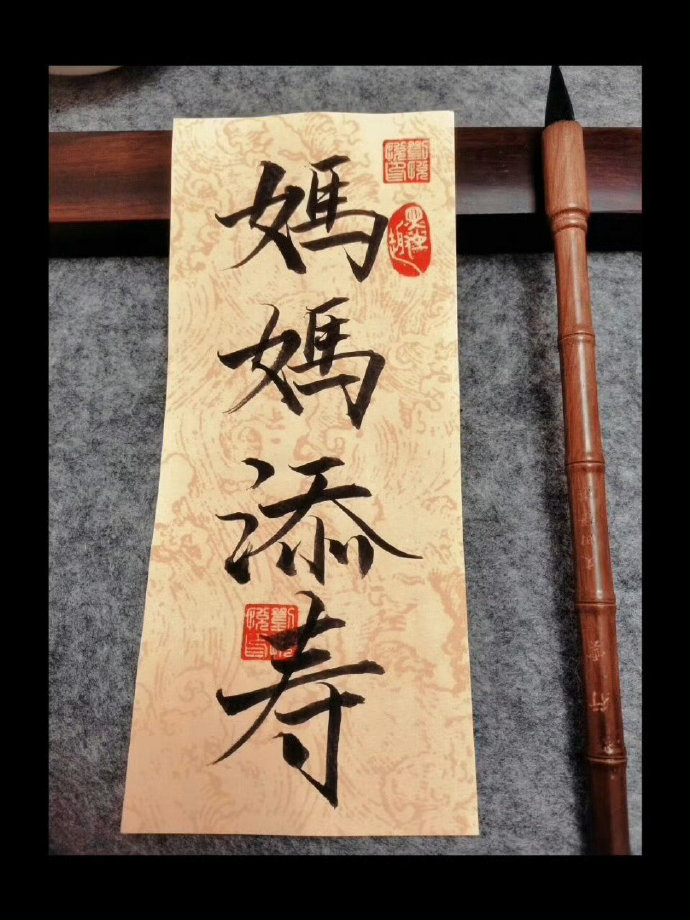 媽媽添寿